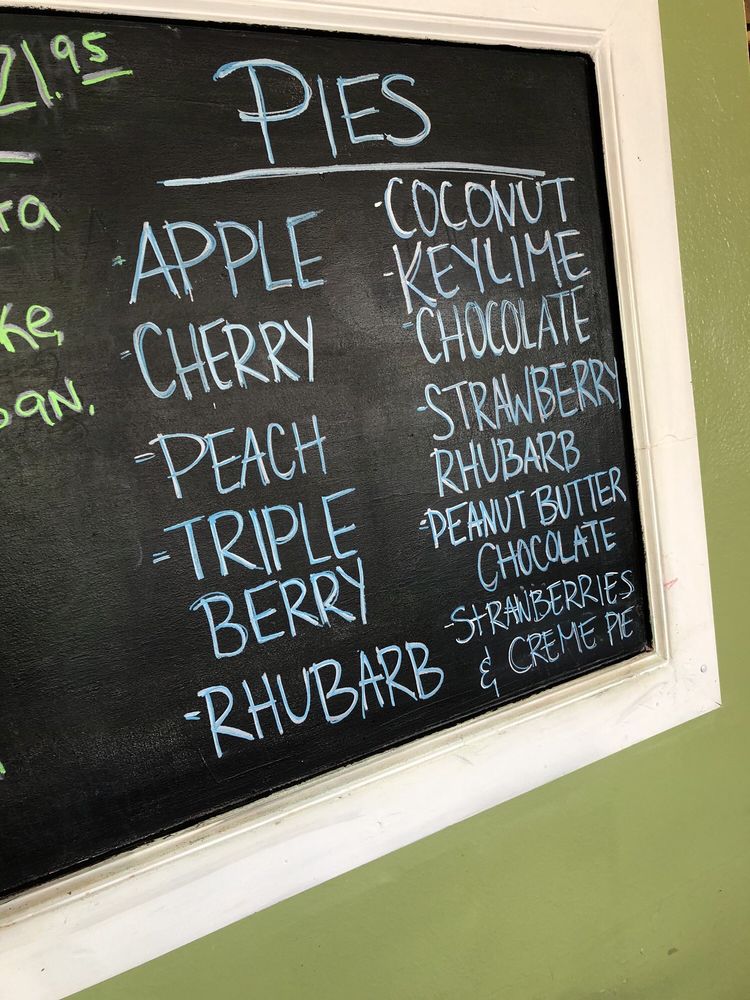 21.95
PIES
- APPLE
= CHERRY
= PEACH
= TRIPLE
BERRY
- RHUBARB
- COCONUT
- KEYLIME
- CHOCOLATE
- STRAWBERRY
RHUBARB
- PEANUT BUTTER
CHOCOLATE
- STRAWBERRIES
& CREME PIE